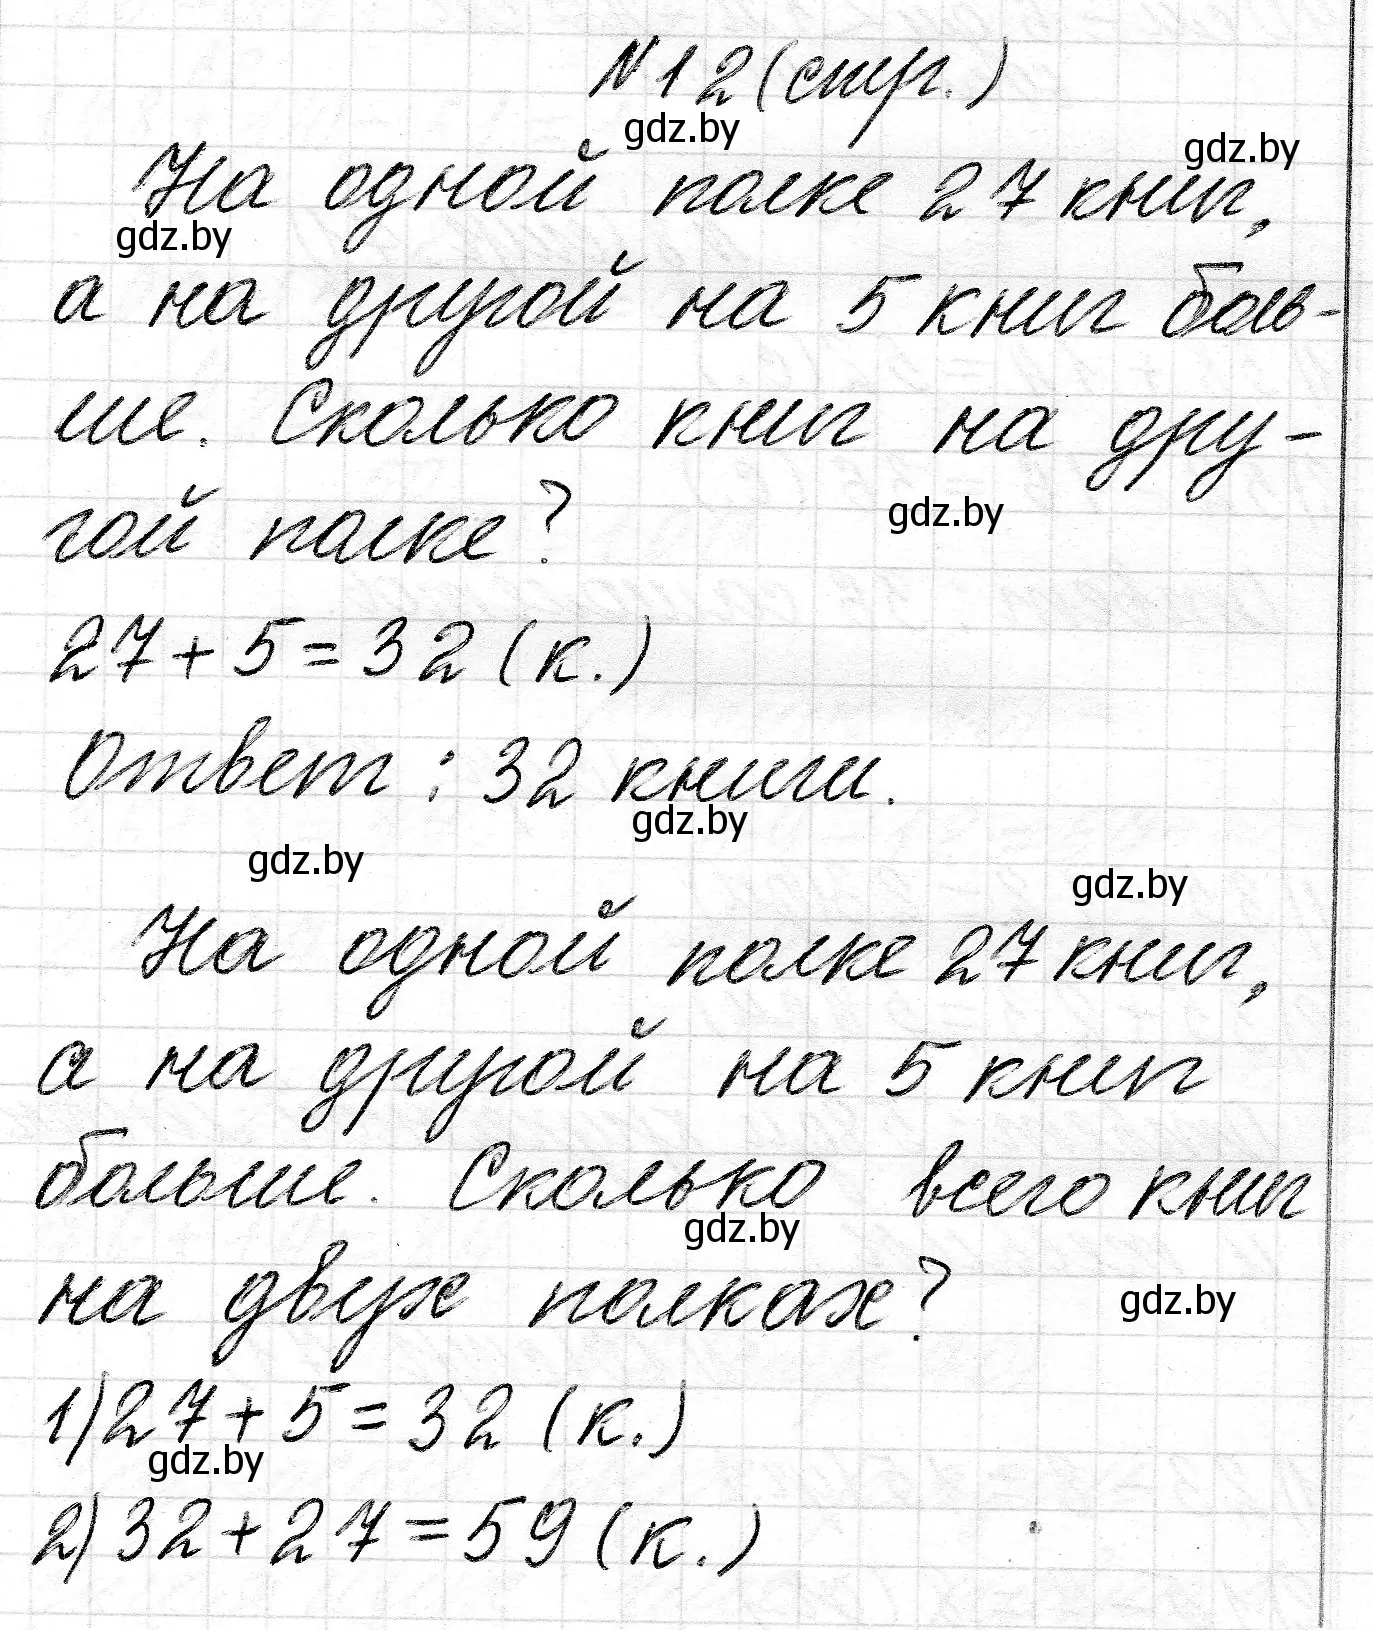 N12 (стр. )
gdz.by
gdz.by
На одной полке 27 книг,
gdz.by
а на другой на 5 книг боль-
ше. Сколько книг на дру-
гой полке?
gdz.by
27+5=32 (к.)
Ответ: 32 книги.
gdz.by
gdz.by
gdz.by
На одной полке 27 книг,
а на другой на 5 книг
больше. Сколько всего книг
gdz.by
на двух полках?
gdz.by
1) 27+5=32 (к.)
gdz.by
2) 32+27=59 (к.)